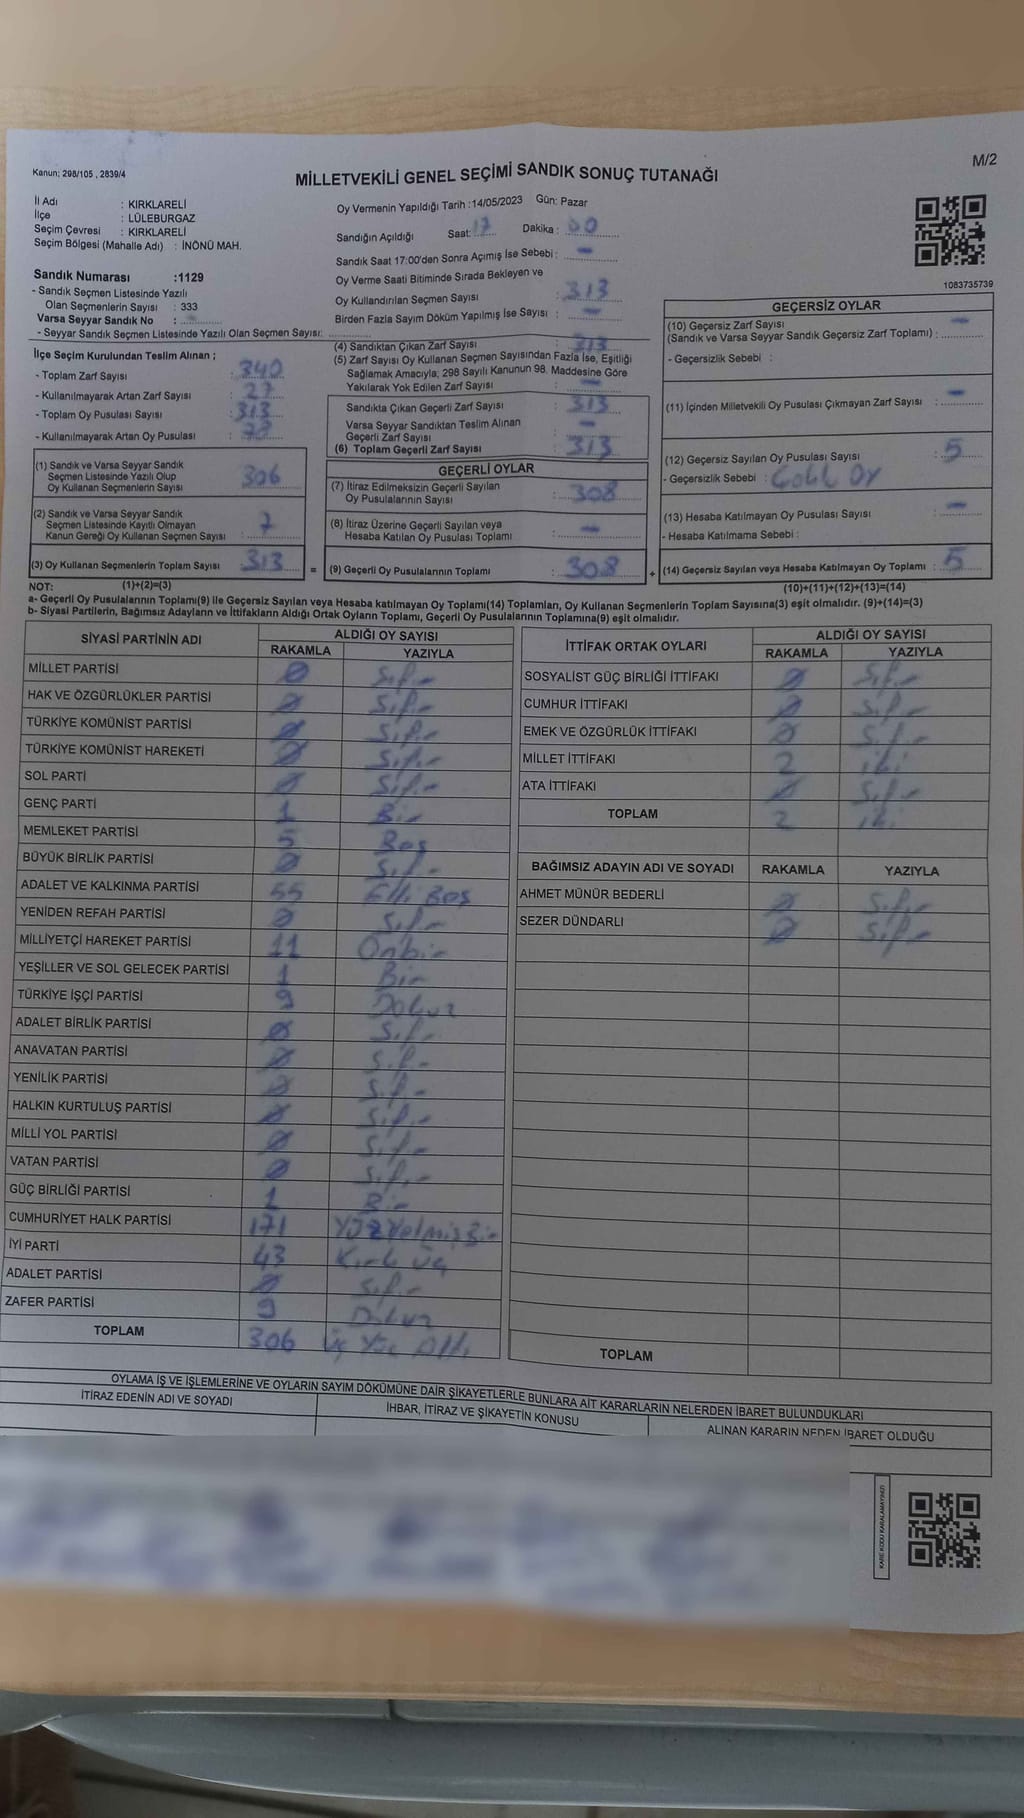 Kanun; 298/105 , 2839/4
MİLLETVEKİLİ GENEL SEÇİMİ SANDIK SONUÇ TUTANAĞI
M/2
İl Adı : KIRKLARELİ
İlçe : LÜLEBURGAZ
Seçim Çevresi : KIRKLARELİ
Seçim Bölgesi (Mahalle Adı) : İNÖNÜ MAH.
Sandık Numarası :1129
- Sandık Seçmen Listesinde Yazılı
Olan Seçmenlerin Sayısı : 333
Varsa Seyyar Sandık No :
- Seyyar Sandık Seçmen Listesinde Yazılı Olan Seçmen Sayısı:
Oy Vermenin Yapıldığı Tarih :14/05/2023 Gün: Pazar
Sandığın Açıldığı Saat: 17 Dakika : 00
Sandık Saat 17:00'den Sonra Açımış İse Sebebi : -
Oy Verme Saati Bitiminde Sırada Bekleyen ve
Oy Kullandırılan Seçmen Sayısı : 313
Birden Fazla Sayım Döküm Yapılmış İse Sayısı : -
1083735739
İlçe Seçim Kurulundan Teslim Alınan ;
- Toplam Zarf Sayısı : 340
- Kullanılmayarak Artan Zarf Sayısı : 27
- Toplam Oy Pusulası Sayısı : 313
- Kullanılmayarak Artan Oy Pusulası :
(1) Sandık ve Varsa Seyyar Sandık
Seçmen Listesinde Yazılı Olup
Oy Kullanan Seçmenlerin Sayısı : 306
(2) Sandık ve Varsa Seyyar Sandık
Seçmen Listesinde Kayıtlı Olmayan
Kanun Gereği Oy Kullanan Seçmen Sayısı : 7
(3) Oy Kullanan Seçmenlerin Toplam Sayısı : 313
(4) Sandıktan Çıkan Zarf Sayısı : 313
(5) Zarf Sayısı Oy Kullanan Seçmen Sayısından Fazla İse, Eşitliği
Sağlamak Amacıyla; 298 Sayılı Kanunun 98. Maddesine Göre
Yakılarak Yok Edilen Zarf Sayısı : -
Sandıkta Çıkan Geçerli Zarf Sayısı : 313
Varsa Seyyar Sandıktan Teslim Alınan
Geçerli Zarf Sayısı : -
(6) Toplam Geçerli Zarf Sayısı : 313
GEÇERLİ OYLAR
(7) İtiraz Edilmeksizin Geçerli Sayılan
Oy Pusulalarının Sayısı : 308
(8) İtiraz Üzerine Geçerli Sayılan veya
Hesaba Katılan Oy Pusulası Toplamı : -
= (9) Geçerli Oy Pusulalarının Toplamı : 308
GEÇERSİZ OYLAR
(10) Geçersiz Zarf Sayısı
(Sandık ve Varsa Seyyar Sandık Geçersiz Zarf Toplamı) : -
- Geçersizlik Sebebi :
(11) İçinden Milletvekili Oy Pusulası Çıkmayan Zarf Sayısı : -
(12) Geçersiz Sayılan Oy Pusulası Sayısı : 5
- Geçersizlik Sebebi : Çokl Oy
(13) Hesaba Katılmayan Oy Pusulası Sayısı : -
- Hesaba Katılmama Sebebi :
+ (14) Geçersiz Sayılan veya Hesaba Katılmayan Oy Toplamı : 5
NOT: (1)+(2)=(3)
(10)+(11)+(12)+(13)=(14)
a- Geçerli Oy Pusulalarının Toplamı(9) ile Geçersiz Sayılan veya Hesaba katılmayan Oy Toplamı(14) Toplamları, Oy Kullanan Seçmenlerin Toplam Sayısına(3) eşit olmalıdır. (9)+(14)=(3)
b- Siyasi Partilerin, Bağımsız Adayların ve İttifakların Aldığı Ortak Oyların Toplamı, Geçerli Oy Pusulalarının Toplamına(9) eşit olmalıdır.
SİYASİ PARTİNİN ADI ALDIĞI OY SAYISI
RAKAMLA YAZIYLA
MİLLET PARTİSİ 0 Sıfır
HAK VE ÖZGÜRLÜKLER PARTİSİ 0 Sıfır
TÜRKİYE KOMÜNİST PARTİSİ 0 Sıfır
TÜRKİYE KOMÜNİST HAREKETİ 0 Sıfır
SOL PARTİ 0 Sıfır
GENÇ PARTİ 1 Bir
MEMLEKET PARTİSİ 5 Beş
BÜYÜK BİRLİK PARTİSİ 0 Sıfır
ADALET VE KALKINMA PARTİSİ 55 Elli Beş
YENİDEN REFAH PARTİSİ 0 Sıfır
MİLLİYETÇİ HAREKET PARTİSİ 11 Onbir
YEŞİLLER VE SOL GELECEK PARTİSİ 1 Bir
TÜRKİYE İŞÇİ PARTİSİ 9 Dokuz
ADALET BİRLİK PARTİSİ 0 Sıfır
ANAVATAN PARTİSİ 0 Sıfır
YENİLİK PARTİSİ 0 Sıfır
HALKIN KURTULUŞ PARTİSİ 0 Sıfır
MİLLİ YOL PARTİSİ 0 Sıfır
VATAN PARTİSİ 0 Sıfır
GÜÇ BİRLİĞİ PARTİSİ 1 Bir
CUMHURİYET HALK PARTİSİ 171 YüzYetmişBir
İYİ PARTİ 43 Kırk Üç
ADALET PARTİSİ 0 Sıfır
ZAFER PARTİSİ 9 Dokuz
TOPLAM 306 Üç Yüz Altı
İTTİFAK ORTAK OYLARI ALDIĞI OY SAYISI
RAKAMLA YAZIYLA
SOSYALİST GÜÇ BİRLİĞİ İTTİFAKI 0 Sıfır
CUMHUR İTTİFAKI 0 Sıfır
EMEK VE ÖZGÜRLÜK İTTİFAKI 0 Sıfır
MİLLET İTTİFAKI 2 iki
ATA İTTİFAKI 0 Sıfır
TOPLAM 2 iki
BAĞIMSIZ ADAYIN ADI VE SOYADI RAKAMLA YAZIYLA
AHMET MÜNÜR BEDERLİ 0 Sıfır
SEZER DÜNDARLI 0 Sıfır
TOPLAM
OYLAMA İŞ VE İŞLEMLERİNE VE OYLARIN SAYIM DÖKÜMÜNE DAİR ŞİKAYETLERLE BUNLARA AİT KARARLARIN NELERDEN İBARET BULUNDUKLARI
İTİRAZ EDENİN ADI VE SOYADI İHBAR, İTİRAZ VE ŞİKAYETİN KONUSU ALINAN KARARIN NEDEN İBARET OLDUĞU
KARE KODU KARALAMAYINIZ!